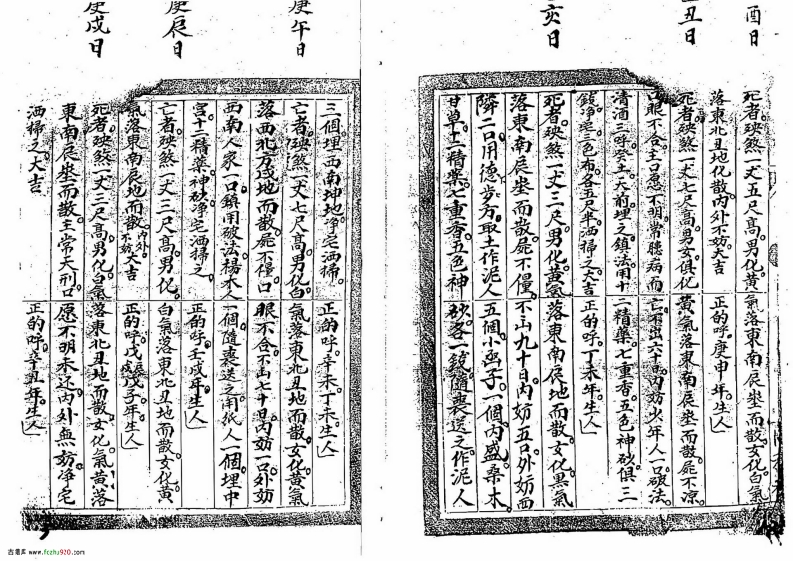 酉日
死者殃煞一丈五尺高男化黄氣落東南辰坐而散女化白氣
落東北丑地化散內外不妨大吉 正的呼庚申年生人
丑日
死者殃煞一丈七尺高男女俱化黃氣落東南辰坐而散屍不凉
口眼不合主口愿不明常聴病而亡不出六十日內妨少年人一口破法
清酒三呼癸主大前埋之鎮法用十二精藥七重香五色神砂俱三
錢净岩三色布各五尺半洒掃之大吉 正的呼丁未年生人
亥日
死者殃煞一丈三尺男化黄氣落東南辰地而散女化黑氣
落東南辰坐而散屍不僵不出九十日內妨五口外妨西
隣二口用德步方取土作泥人五個小函子一個內盛桑木
甘草十二精藥七重香五色神砂各一錢隨喪送之作泥人
庚午日
三個埋西南坤地净宅洒掃 正的呼辛未丁未年生人
亡者殃煞一丈七尺高男化白氣落東北丑地而散女化黄氣
落西北方戌地而散屍不僵口眼不合不出七十日內妨一口外妨
西南人家一口鎮用破法楊木人一個隨喪送之用紙人一個埋中
宫十二精藥神砂净宅洒掃之 正的呼壬戌年生人
庚辰日
亡者殃煞一丈三尺高男化白氣落東北丑地而散女化黄
氣落東南辰地而散內外不妨大吉 正的呼戊辰戊子年生人
庚戌日
死者殃煞一丈三尺高男化白氣落東北丑地而散女化氣黄落
東南辰坐而散主常大刑口愿不明未还內外無妨净宅
洒掃之大吉 正的呼辛丑年生人
古籍库 www.fczhu920.com